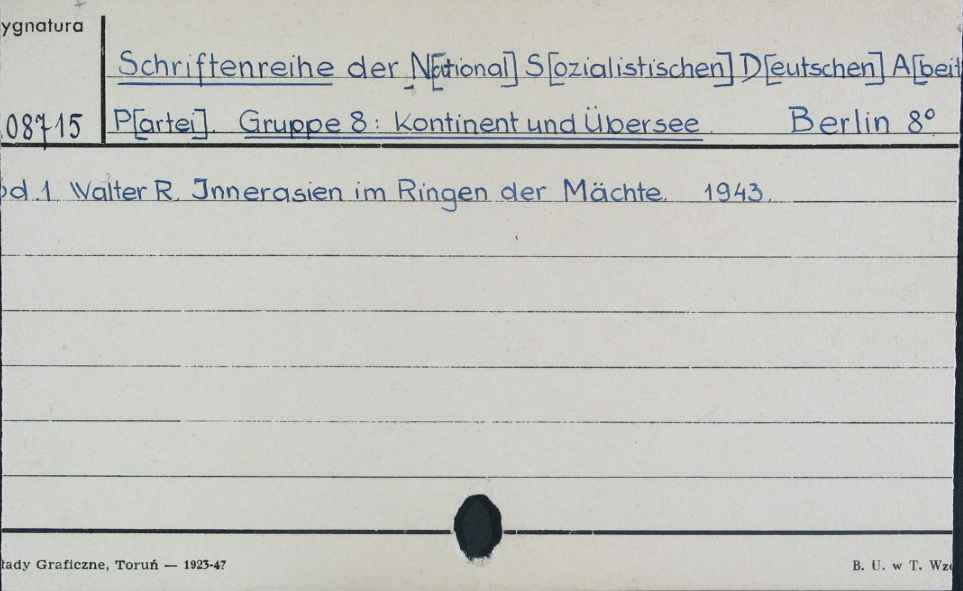 ygnatura
Schriftenreihe der N[ational] S[ozialistischen] D[eutschen] A[beit
08715 P[artei]. Gruppe 8: Kontinent und Übersee. Berlin 8°
bd.1. Walter R. Innerasien im Ringen der Mächte. 1943.
łady Graficzne, Toruń — 1923-47 B. U. w T. Wzó